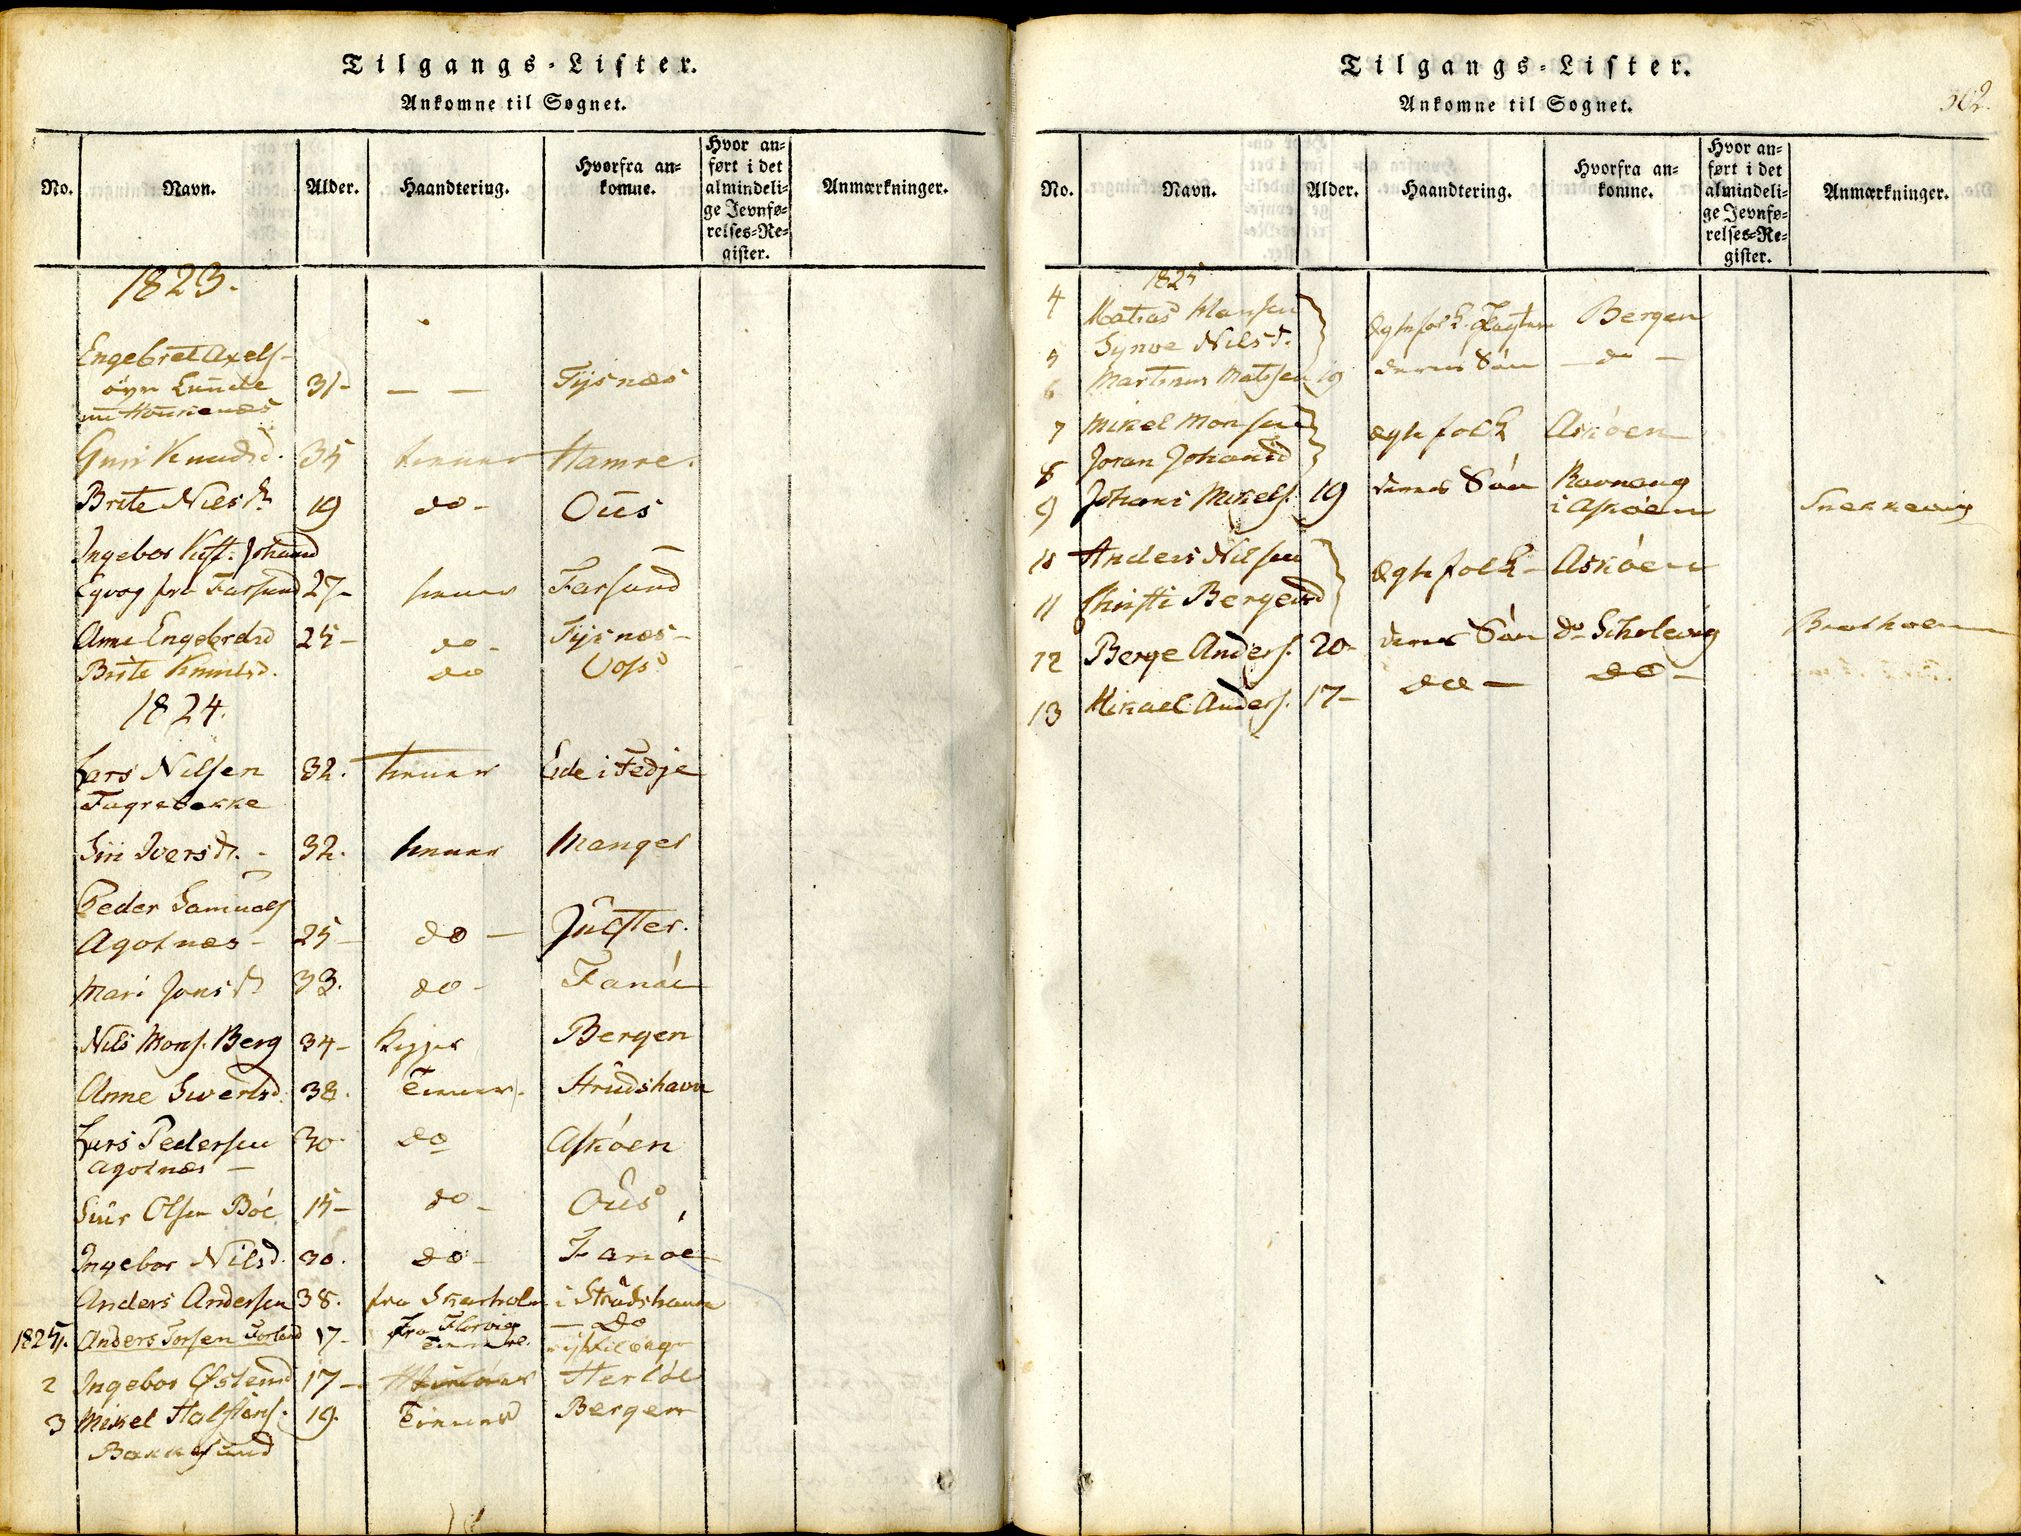 Tilgangs-Lister.
Ankomne til Sognet.
No. Navn. Alder. Haandtering. Hvorfra an-komne. Hvor an-ført i det almindeli-ge Jevnfø-relses-Re-gister. Anmærkninger.
1823.
Engebret Axels-
øyr Lunde 31- — — Tysnæs
Guri Knudsd. 35 tiener Hamre.
Brite Nilsd. 19 do- Ous
Ingebor Johansd
fra Farsund 27- tiener Farsund
Anne Engebrdsd 25- do- Tysnæs-
Brite Knudsd. do Vos
1824.
Lars Nilsen 32. tiener Eide i Fedje
Fagrebakke
Siri Ivers d. - 32. tiener Manger
Peder Samuels
Agotnæs - 25- do - Julster.
Mari Jonsd 33. do- Fanöe
Nils Mons. Berg 34- Bergen
Anne Sivertsd. 38. Tiener. Strudshavn
Lars Pedersen 30. do Askøen
Agotnæs -
Siur Olsen Böe 15- do- Ous
Ingebor Nilsd. 30. do- Fanöe
Anders Andersen 38. fra Skarholm i Strudshavn
1825. Anders Torsen Forland 17- fra Florvig — Do
2 Ingebor Østensd 17- Herlöe
3 Mikel Halstens. 19. Tiener Bergen
Bakkesund
Tilgangs-Lister.
Ankomne til Sognet.
302.
No. Navn. Alder. Haandtering. Hvorfra an-komne. Hvor an-ført i det almindeli-ge Jevnfø-relses-Re-gister. Anmærkninger.
1825
4 Matias Hansen Egtefolk Bergen
5 Synve Nilsd.
6 Martinus Matisen 19 deres Sön — do —
7 Mikel Monsen Egtefolk Askøen
8 Joran Johansd
9 Johanes Mikels. 19 deres Sön Ravnang
i Askøen
10 Anders Nilsen Egtefolk - Askøen
11 Christi Bergesd
12 Berge Anders. 20- deres Sön do Scholevig
13 Mikael Anders. 17- do — do -